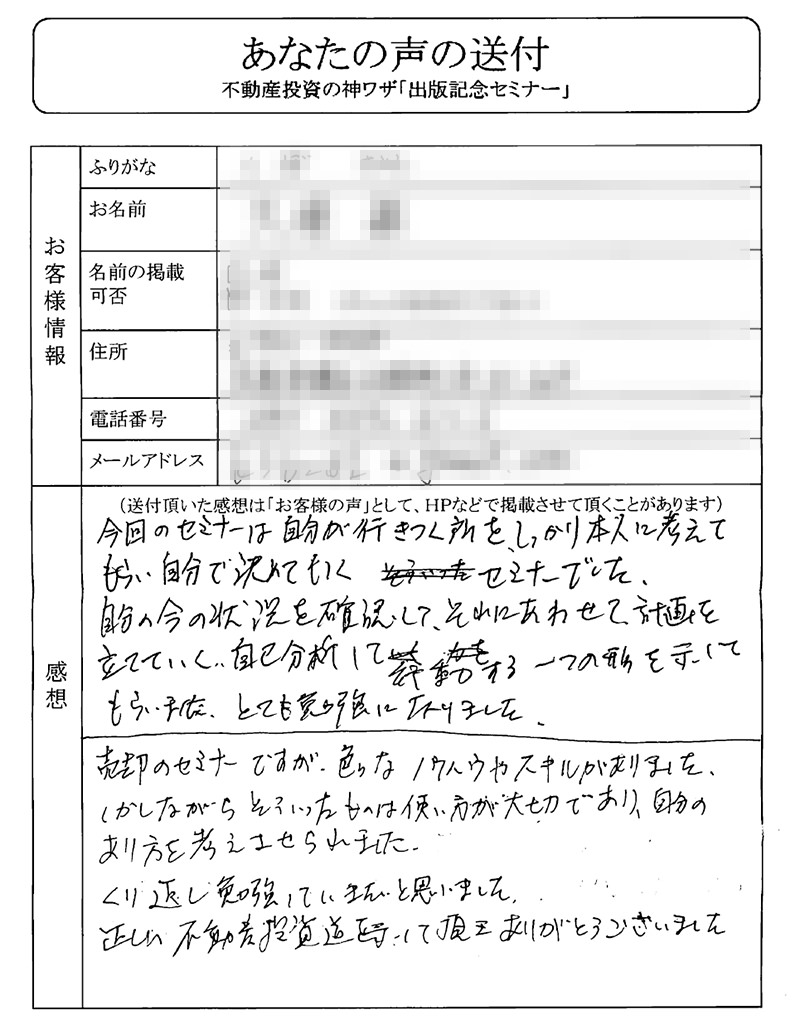 あなたの声の送付
不動産投資の神ワザ「出版記念セミナー」
お客様情報
ふりがな
お名前
名前の掲載
可否
住所
電話番号
メールアドレス
感想
（送付頂いた感想は「お客様の声」として、HPなどで掲載させて頂くことがあります）
今回のセミナーは自分が行きつく所を、しっかり本人に考えて
もらい自分で決めていく そういった セミナーでした、
自分の今の状況を確認して、それにあわせて、計画を
立てていく、自己分析して 行動する 一つの形を示して
もらいました、とても勉強になりました、
売却のセミナーですが、色々な ノウハウやスキルがありました、
しかしながらそういったものは使い方が大切であり、自分の
あり方を考えさせられました.
くり返し勉強していきたいと思いました、
正しい 不動産投資道を示して頂き ありがとうございました